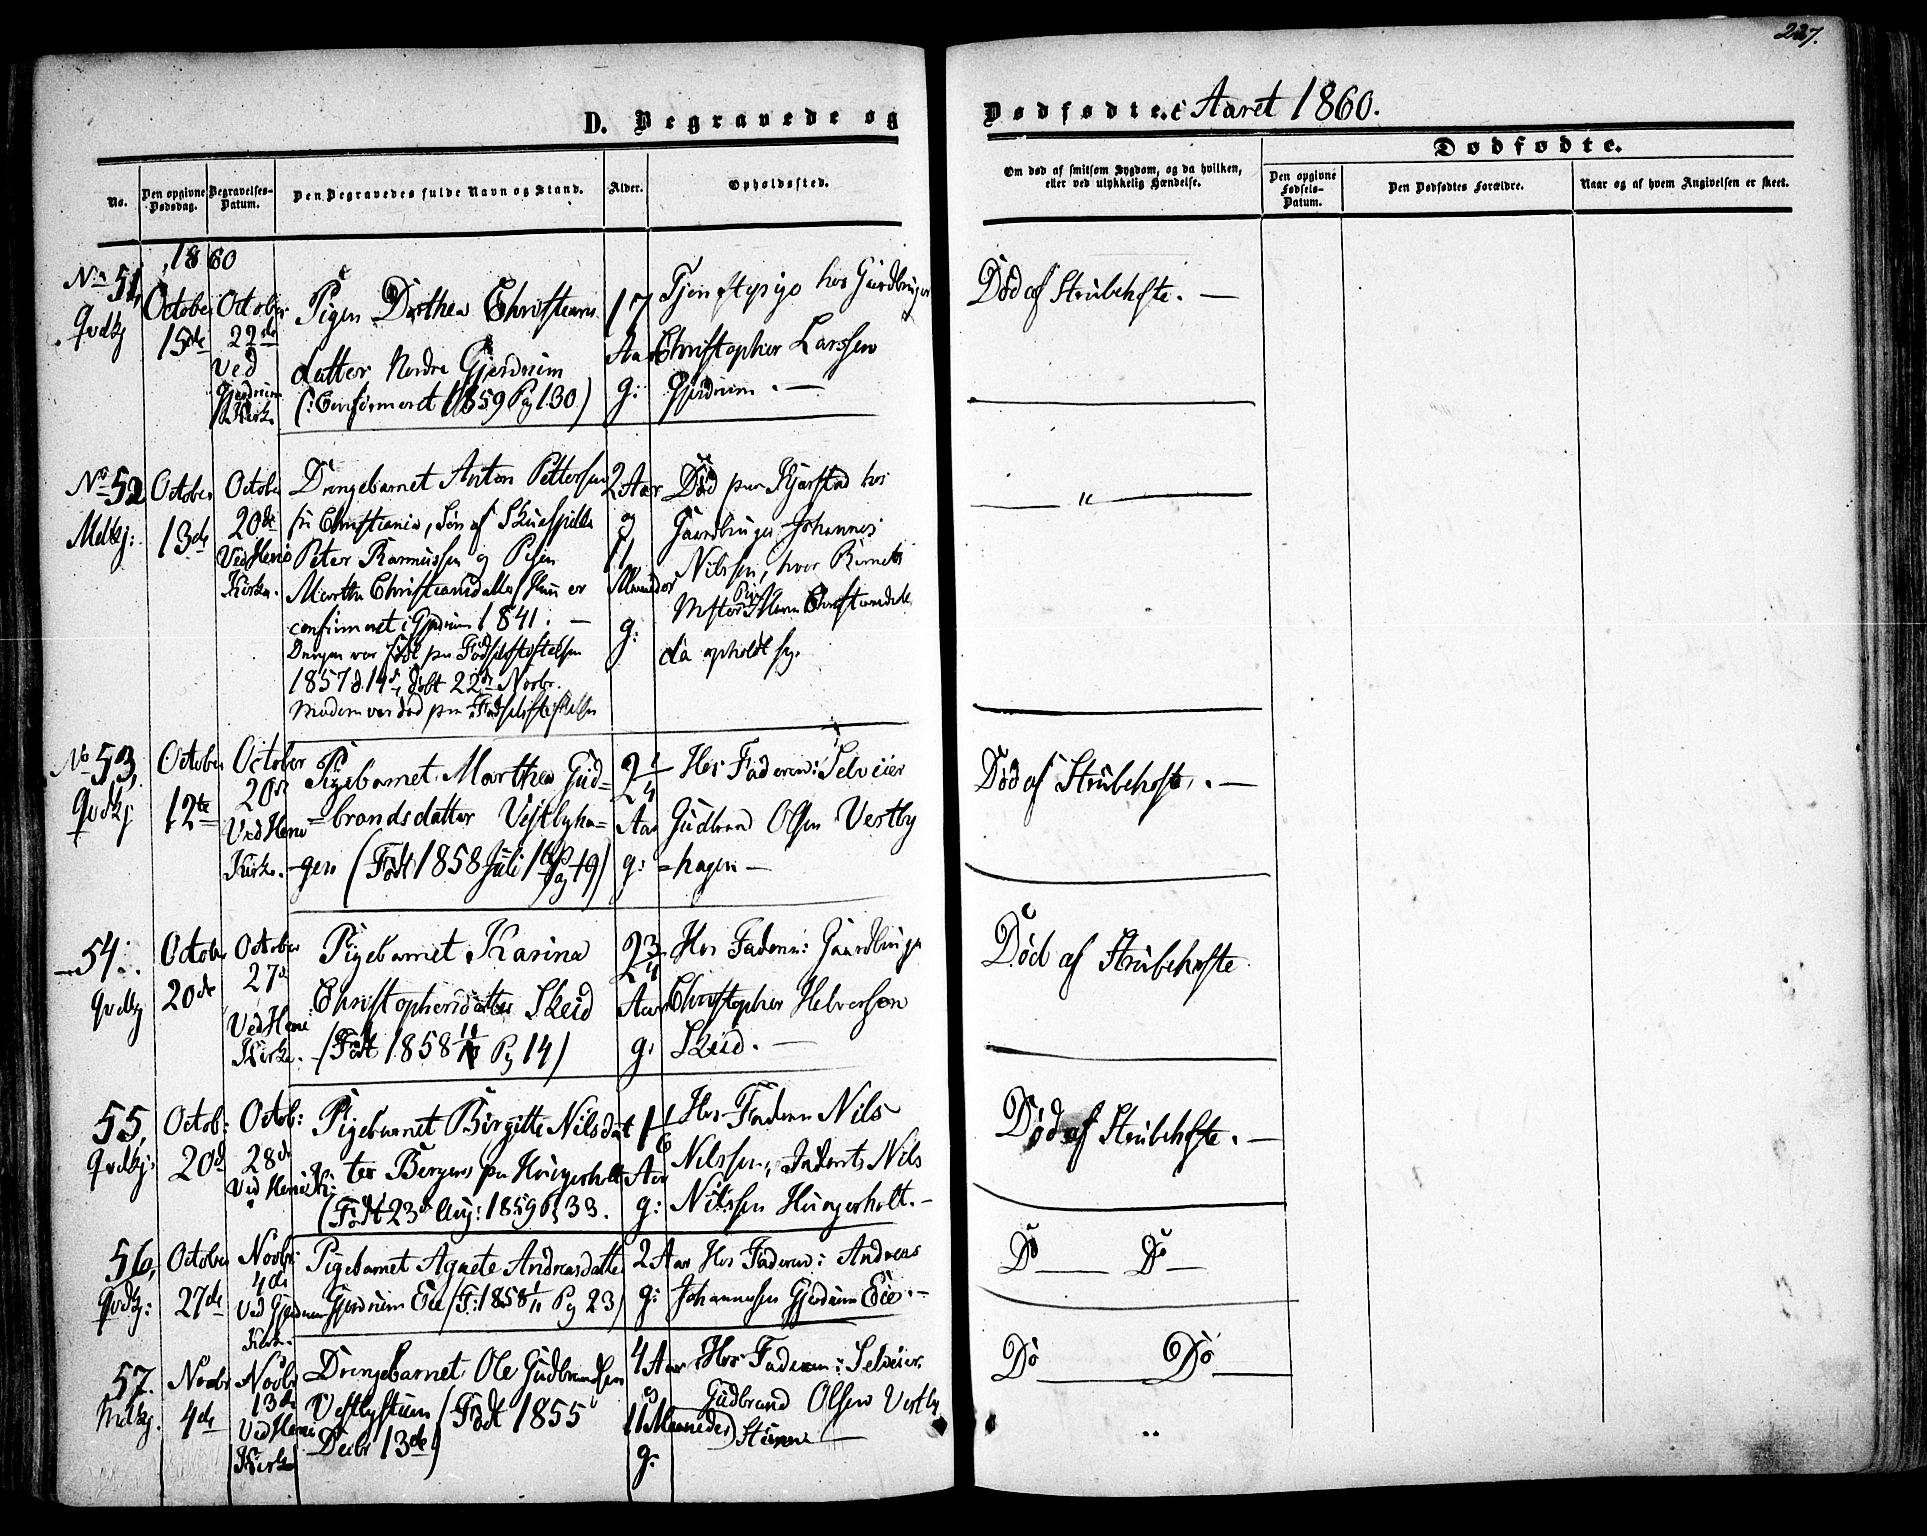 227.
D. Begravede og
Dødfødte. i Aaret 1860.
No.
Den opgivne Dødsdag.
Begravelses-Datum.
Den Begravedes fulde Navn og Stand.
Alder.
Opholdssted.
Om død af smitsom Sygdom, og da hvilken,
eller ved ulykkelig Hændelse.
Dødfødte.
Den opgivne Fødsels-Datum.
Den Dødfødtes Forældre.
Naar og af hvem Angivelsen er skeet.
1860
No 51,
Qvdkj
October
15de
October
22de
Ved
Gjerdrum
Kirk.
Pigen Dorthea Christians
datter Nordre Gjerdrum
(: Confirmeret 1859 Pg 130)
17
Aar
g:
Tjenestpige hos Gaardbruger
Christopher Larssen
Gjerdrum. —
Død af Strubehoste. —
No 52
Mdkj:
October
13de
October
20de
Ved Heni
Kirke.
Drengebarnet Anton Pettersen
fr Christiania, Søn af Skuespiller
Peter Rasmussen og Pigen
Marthe Christiansdatter/ Hun er
confirmeret i Gjerdrum 1841. —
Drengen var født paa Fødselsstiftelsen
1857 d. 14de, døbt 22de Novbr.
Moderen var død paa Fødselsstiftelsen
2 Aar
og
11
Maaneder
g:
Død paa Kjærstad hos
Gaardbruger Johannes
Nilssen, hvor Barnets
Moster Pige Maren Christiansdatter
da opholdt sig.
— " —
No 53,
Qvdkj
October
12te
October
20de
Ved Heni
Kirke.
Pigebarnet Marthea Gud-
=brandsdatter Vestbyha-
-gen (Født 1858 Juli 1ste Pag 19)
2 1/4
Aar
g:
Hos Faderen: Selveier
Gudbrand Olsen Vestby
=hagen —
Død af Strubehoste. —
54.
Qvdkj
Octobr
20de
October
27de
Ved Heni
Kirke.
Pigebarnet Karina
Christophersdatter Skeid
(Født 1858 Pg 14)
2 3/4
Aar
g:
Hos Faderen: Gaardbruger
Christopher Helversen
Skeid. —
Død af Strubehoste
55,
Qvdkj:
Octob:
20de
Octob:
28de
Ved Heni Ki:
Pigebarnet Birgitte Nilsdat
ter Bergens paa Hungerholt
(Født 23de Aug: 1859 Pg 33.
1 1/6
Aar
g:
Hos Faderen Nils
Nilssen, Inderst Nils
Nilssen Hungerholt. —
Død af Strubehoste. —
56,
Qvdkj:
October
27de
Novbr:
4de
Ved Gjerdrum
Kirke.
Pigebarnet Agnete Andreasdatter
Gjerdrum Eie (F: 1858 1/11 Pg 23)
2 Aar
g:
Hos Faderen: Andreas
Johannesen Gjerdrum Eie. —
Do — Do —
57.
Mdkj.
Novbr
4de
Novbr
13de
Ved Heni
Kirke
Drengebarnet Ole Gudbrandsen
Vestbystuen (Født 1855
Decbr 13de)
4 Aar
og
11 Maaneder
g:
Hos Faderen: Selveier
Gudbrand Olsen Vestby
Stuen —
Do — Do —